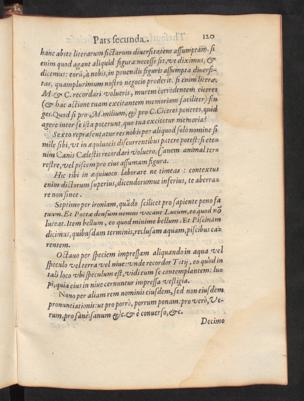 Pars secunda. 120
hanc abste literarum fictarum diuersitatem assumptam. si
enim quod agant aliquid figuræ necesse sit, vt diximus, &
dicemus: eorū, à nobis, in ponendis figuris assumpta diuersi-
tas, quamplurimum nostro negocio proderit. si enim literæ
M. & C. recordari volueris, murem corrodentem ciceres
(& hac actione tuam excitantem memoriam faciliter) fin-
ges. Quod si pro M. milium, & pro C. Ciceres poneres, quid
agere inter se ista poterunt, quæ tua excitetur memoria?
Sexto repræsentatur res nobis per aliquod solo nomine si
mile sibi, vt in æquiuocis discurrentibus patere potest: si ete-
nim Canis Cœlestis recordari voluero, Canem animal ter-
restre, vel piscem pro eius assumam figura.
Hic tibi in æquiuoco laborare ne timeas: contextus
enim dictorum superius, dicendorumue inferius, te aberra-
re non sinet.
Septimo per ironiam, quādo scilicet pro sapiente pono fa
tuum. Et Poetæ densum nemus vocant Lucum, eo quod nō
luceat. Item bellum, eo quod minime bellum. Et Piscinam
dicimus, quibusdam terminis, reclusam aquam, piscibus ca-
rentem.
Octauo per speciem impressam aliquando in aqua vel
speculo vel terra vel niue: vnde recordor Titÿ, eo quod in
tali loco vbi speculum est, vidi eum se contemplantem: lu-
piq; quia eius in niue cernuntur impressa vestigia.
Nono per aliam rem nominis eiusdem, sed non eiusdem
pronunciationis: vt pro porrò, porrum ponam. pro verò, Ve-
rum, pro sanè: sanum &c. & è conuerso, &c.
Decimo